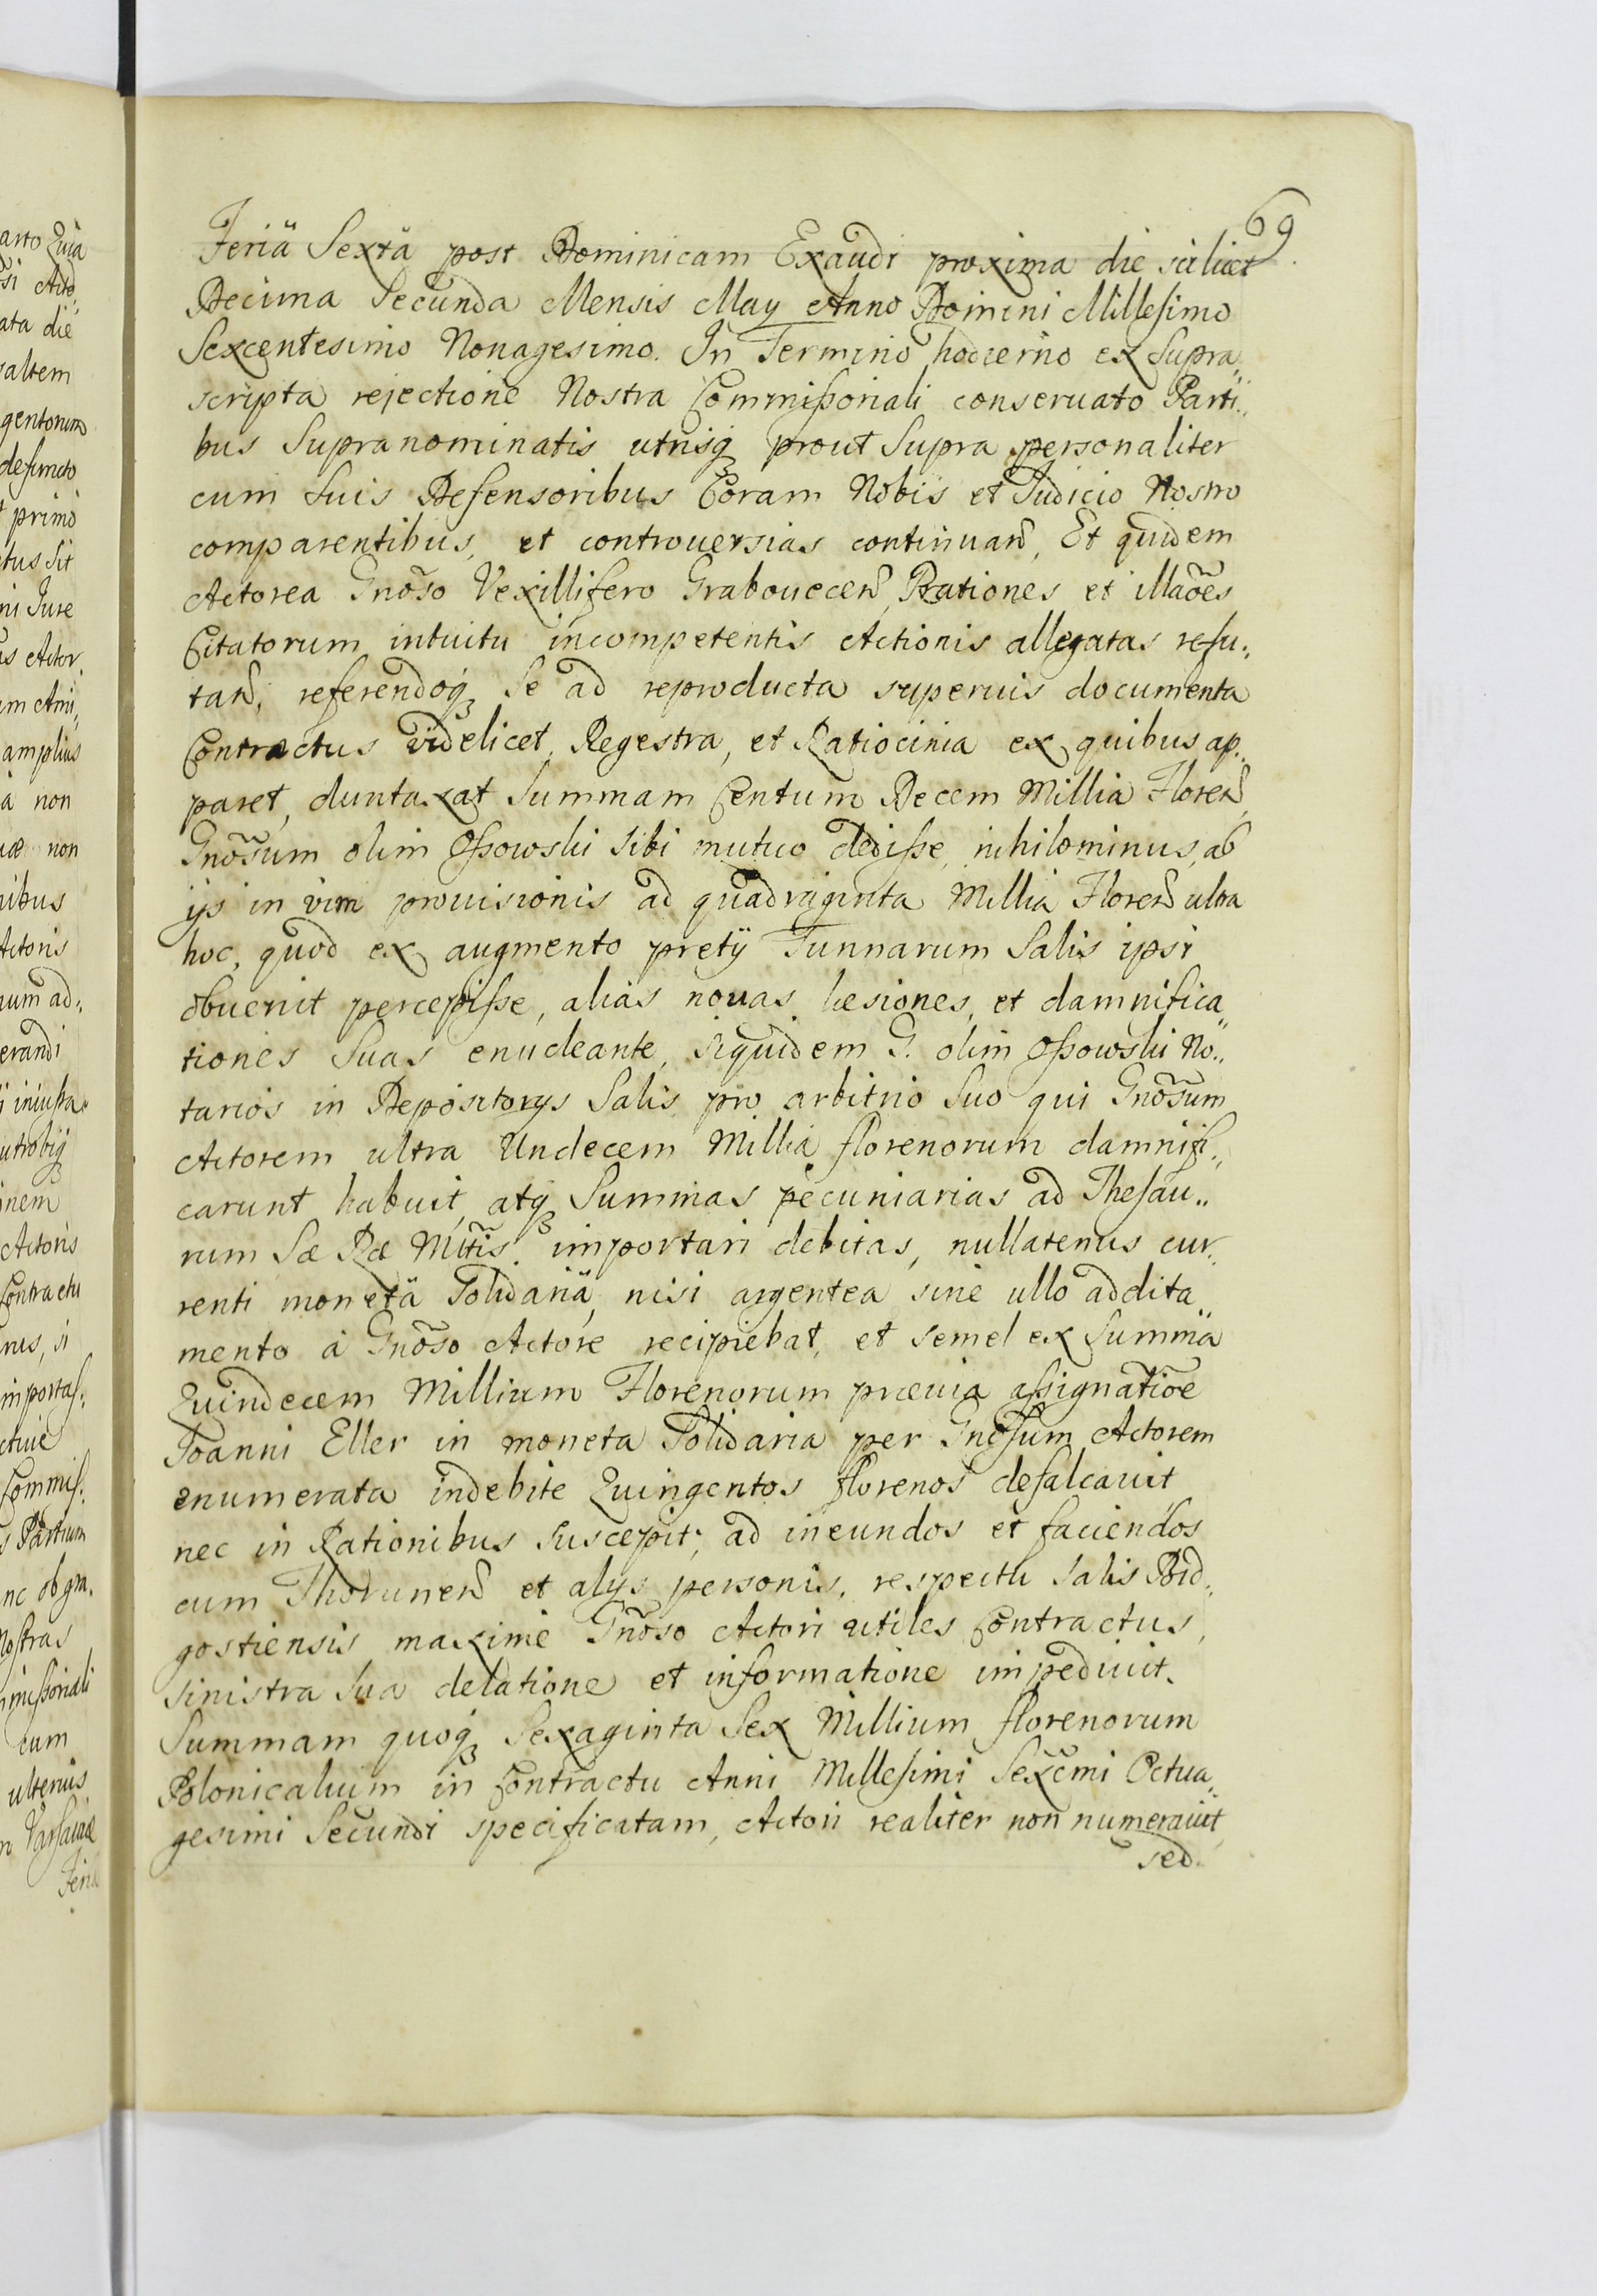 69.
Feriâ Sexta post Dominicam Exaudi proxima die scilicet
Decima Secunda Mensis May Anno Domini Millesimo
Sexcentesimo Nonagesimo. In Termino hodierno ex Supra„
scripta rejectione Nostra Commissoriali conseruato Parti„
bus Supranominatis utrisq prout Supra personaliter
cum Suis Defensoribus Coram Nobis et Judicio Nostro
comparentibus, et controuersias continuan, Et quidem
Actorea Gnõso Vexillifero Grabouecen, Rationes et illaões
Citatorum intuitu incompetentis Actionis allegatas refu„
tan, referendoq Se ad reproducta superuis documenta
Contractus videlicet, Regestra, et Ratiocinia ex quibus ap„
paret, duntaxat Summam Centum Decem Millia Floren,
Gnõsum olim Ossowski sibi mutuo dedisse, nihilominus, ab
ijs in vim prouisionis ad quadraginta Millia Floren ultra
hoc, quod ex augmento pretij Tunnarum Salis ipsi
obuenit percepisse, alias nouas læsiones, et damnifica„
tiones Suas enucleante, siquidem G. olim Ossowski No„
tarios in Depositorys Salis pro arbitrio Suo qui Gnõsum
Actorem ultra Undecem Millia florenorum damnifi„
carunt habuit, atq Summas pecuniarias ad Thesau„
rum Sæ Ræ Mttis importari debitas, nullatenus cur„
renti monetâ Solidariâ, nisi argentea sine ullo addita„
mento à Gnõso Actore recipiebat, et semel ex Summa
Quindecem Millium Florenorum præuia assignatiõe
Joanni Eller in moneta Solidaria per Gnõsum Actorem
enumerata indebite Quingentos florenos defalcauit
nec in Rationibus suscepit; ad ineundos et faciendos
cum Thorunen et alys personis, respectu Salis Bid„
gostiensis, maxime Gnõso Actori utiles Contractus,
sinistra Sua delatione et informatione impediuit.
Summam quoq Sexaginta Sex Millium florenorum
Polonicalium in Contractu Anni Millesimi Sexcmi Octua„
gesimi Secundi specificatam, Actori realiter non numerauit,
sed